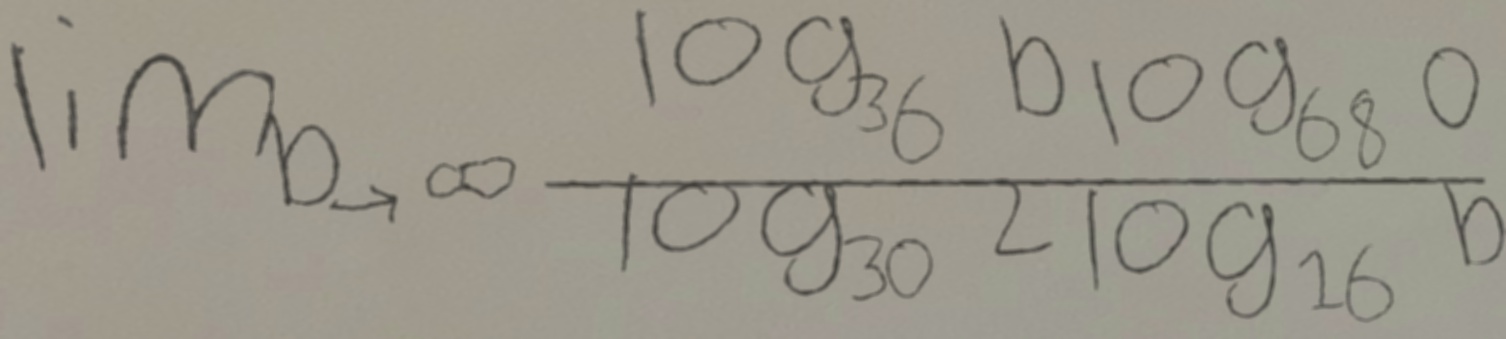 \lim_{b \to \infty} \frac{\log_{36} b \log_{68} 0}{\log_{30} 2 \log_{16} b}